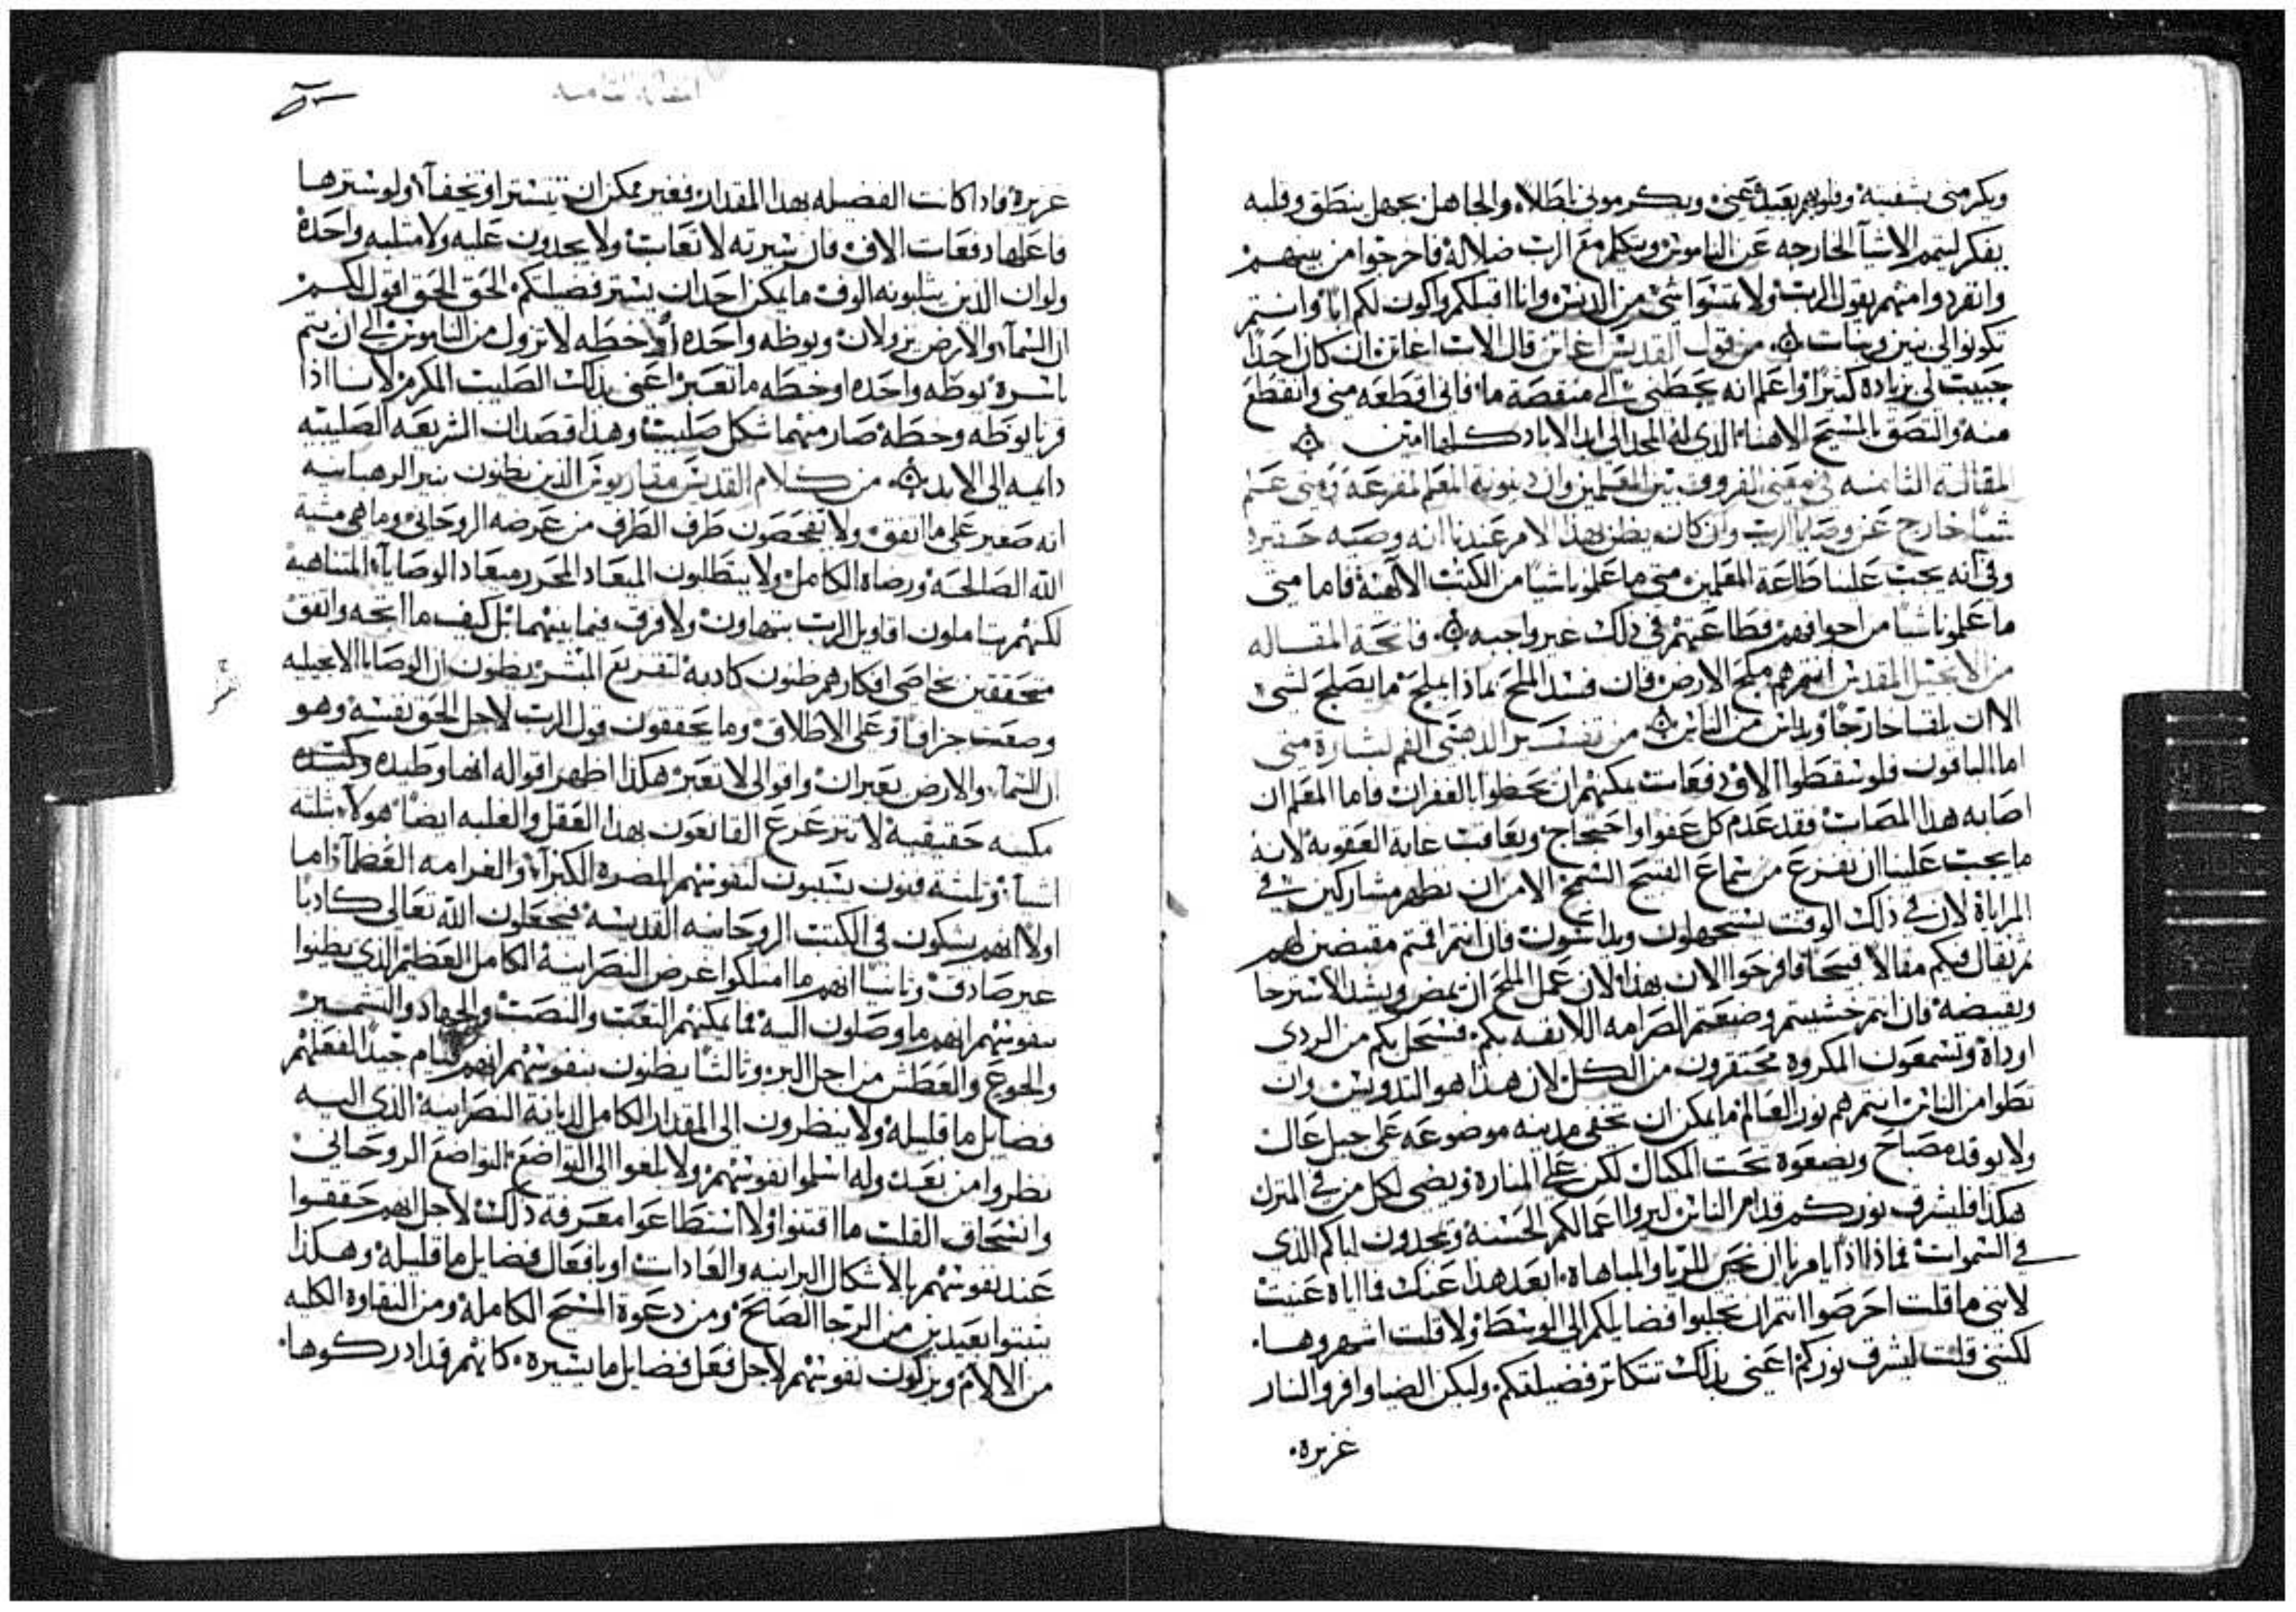 ويكرمني بشفتيه وقلوبهم بعيدة عني ويكرموني باطلا والجاهل بجهل ينطق وقلبه
يفكر ليتمم الاشيآ الخارجه عن الناموس ويتكلم مع الرب ضلالة فاخرجوا من بينهم
وانفردوا منهم يقول الرب ولا تمسوا شي من الدنس وانا اقبلكم واكون لكم ابا وانتم
تكونوا لي بنين وبنات من قول القديس اغاتن قال الاب اغاتن ان كان احدا
حبيب لي بزياده كثيرا واعلم انه يحطني الي منقصة ما فاني اقطعه مني وانقطع
منه والتصق بالمسيح الاهنا الذي له المجد الى ابد الاباد كلها امين
المقالة الثامنه في معنى الفروق بين المعلمين وان دينونة المعلم المفزعه ومتى علم
شيا خارج عن وصايا الرب وان كان يظن بهذا الامر عندنا انه وصيه حقيره
وفي انه يجب علينا طاعة المعلمين متى ما علمونا شيا من الكتب الالهية فاما متى
ما علمونا شيا من اجوافهم فطاعتهم في ذلك غير واجبه فاتحة المقاله
من الانجيل المقدس انتم هم ملح الارض فان فسد الملح بماذا يملح ما يصلح لشى
الا ان يلقا خارجا ويداس من الناس من تفسير الدهبي الفم لبشارة متى
اما الباقون فلو سقطوا الاف دفعات يمكنهم ان يحظوا بالغفران فاما المعلم ان
اصابه هذا المصاب فقد عدم كل عفو واحتجاج ويعاقب غاية العقوبة لانه
ما يجب علينا ان نفزع من سماع القبيح السمج الا من ان نظهر مشاركين في
المراياة لان في ذلك الوقت تستجهلون وتداسون فان انتم اقمتم مقبضين لهم
ثم يقال فيكم مقالا قبيحا فافرحوا الان بهذا لان عمل الملح ان يمض ويشد الاسترخا
ويقبضه فان انتم خشيتم وضيعتم الصرامه اللايقه بكم فسيحل بكم من الردى
اوداه وتسمعون المكروه محتقرون من الكل لان هذا هو التدويس وان
تطوا من الناس انتم هم نور العالم ما يمكن ان تخفى مدينه موضوعه على جبل عال
ولا يوقد مصباح ويضعوه تحت المكيال لكن على المناره ويضى لكل من في المنزل
هكذا فليشرق نوركم قدام الناس ليروا اعمالكم الحسنه ويمجدون اباكم الذي
في السموات فماذا اذا يامرنا ان نحب الريا والمباهاه ابعد هذا عنك فما اياه عنيت
لانني ما قلت احرصوا انتم ان تجلبوا فضايلكم الى الوسط ولا قلت اشهروها
لكنني قلت ليشرق نوركم اعني بذلك تتكاتر فضيلتكم وليكن الضيا وافر والنار
غزيره
المقاله الثامنه
غزيرة فاذا كانت الفضيله بهذا المقدار فغير ممكن ان تستتر او تخفآ ولو سترها
فاعلها دفعات الاف فان سيرته لا تعاب ولا يجدون عليه ولا مثلبه واحدة
ولو ان الذين يثلبونه الوف ما يمكن احد ان يستر فضيلتكم الحق الحق اقول لكم
ان السمآ والارض يزولان ويوطه واحده او خطه لا تزول من الناموس الى ان يتم
باسره يوطه واحده او خطه ما تعبر اعني بذلك الصليب المكرم لاننا اذا
قرنا يوطه وخطه صار منهما شكل صليب وهذا قصد ان الشريعه الصليبيه
دايمه الى الابد من كلام القديس مقاريوس الذين يظنون بنير الرهبانيه
انه صغير على ما اتفق ولا يفحصون طرف الطرف من غرضه الروحاني وما هي مشية
الله الصالحه ورضاه الكامل ولا يتطلبون الميعاد المحرر ميعاد الوصايآ المتناهيه
لكنهم يتاملون اقاويل الرب بتهاون ولا فرق فيما بينهما بل كيف ما اتجه واتفق
متحققين بخاصي افكارهم ظنون كاذبه لتقريع البشر يظنون ان الوصايا الانجيليه
وضعت جزافا وعلى الاطلاق وما يحققون قول الرب لاجل الحق نفسه وهو
ان السمآ والارض يعبران واقوالي لا تعبر هكذا اظهر اقواله انها وطيده وكتبه
مكينه حقيقيه لا تتزعزع القانعون بهذا العقل والغلبه ايضا هولاء بثلثه
اشيا وثلثة فنون يسببون لنفوسهم المضره الكبرآ والغرامه العظمآ اما
اولا انهم يشكون في الكتب الروحانيه القديسه فيجعلون الله تعالى كاذبا
غير صادق وثانيا انهم ما امتلكوا غرض النصرانية الكامل العظيم الذي يظنوا
بنفوسهم انهم ما وصلون اليه فما يمكنهم التعب والنصب والجهاد والتشمير
والجوع والعطش من اجل البر وثالثا يظنون بنفوسهم انهم قيام جيدا لفعلهم
فضايل ما قليله ولا ينظرون الى المقدار الكامل لديانة النصرانية الذي اليه
نظروا من بعد وله اسلموا نفوسهم ولا بلغوا الى التواضع التواضع الروحاني
وانسحاق القلب ما اقتنوا ولا استطاعوا معرفة ذلك لاجل انهم حققوا
عند نفوسهم بالاشكال البرانيه والعادات او بافعال فضايل ما قليله وهكذا
يثبتوا بعيدين من الرجا الصالح ومن دعوة المسيح الكامله ومن النقاوه الكليه
من الالام ويزكون نفوسهم لاجل فعل فضايل ما يسيره كانهم قد ادركوها